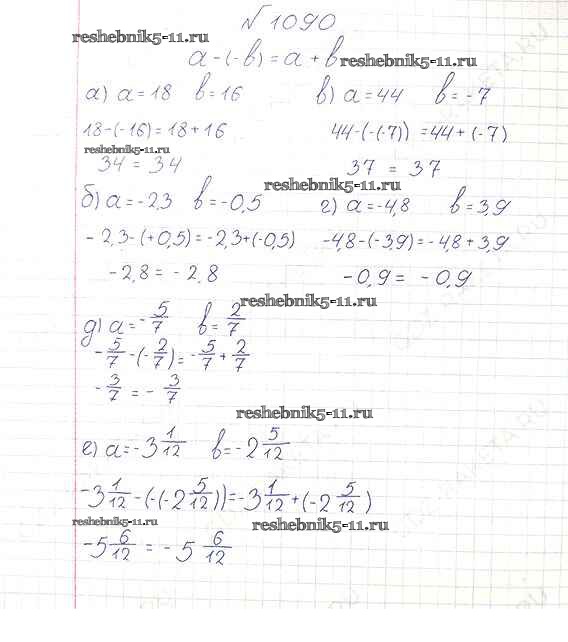 №1090
reshebnik5-11.ru
a-(-b)=a+b reshebnik5-11.ru
а) a=18 b=16 в) a=44 b=-7
18-(-16)=18+16 44-(-(-7))=44+(-7)
reshebnik5-11.ru
34=34 37=37
reshebnik5-11.ru
б) a=-2,3 b=-0,5 г) a=-4,8 b=3,9
-2,3-(+0,5)=-2,3+(-0,5) -4,8-(-3,9)=-4,8+3,9
-2,8=-2,8 -0,9=-0,9
reshebnik5-11.ru
д) a=-5/7 b=2/7
-5/7-(-2/7)=-5/7+2/7
-3/7=-3/7
reshebnik5-11.ru
е) a=-3 1/12 b=-2 5/12
-3 1/12-(-(-2 5/12))=-3 1/12+(-2 5/12)
reshebnik5-11.ru reshebnik5-11.ru
-5 6/12=-5 6/12